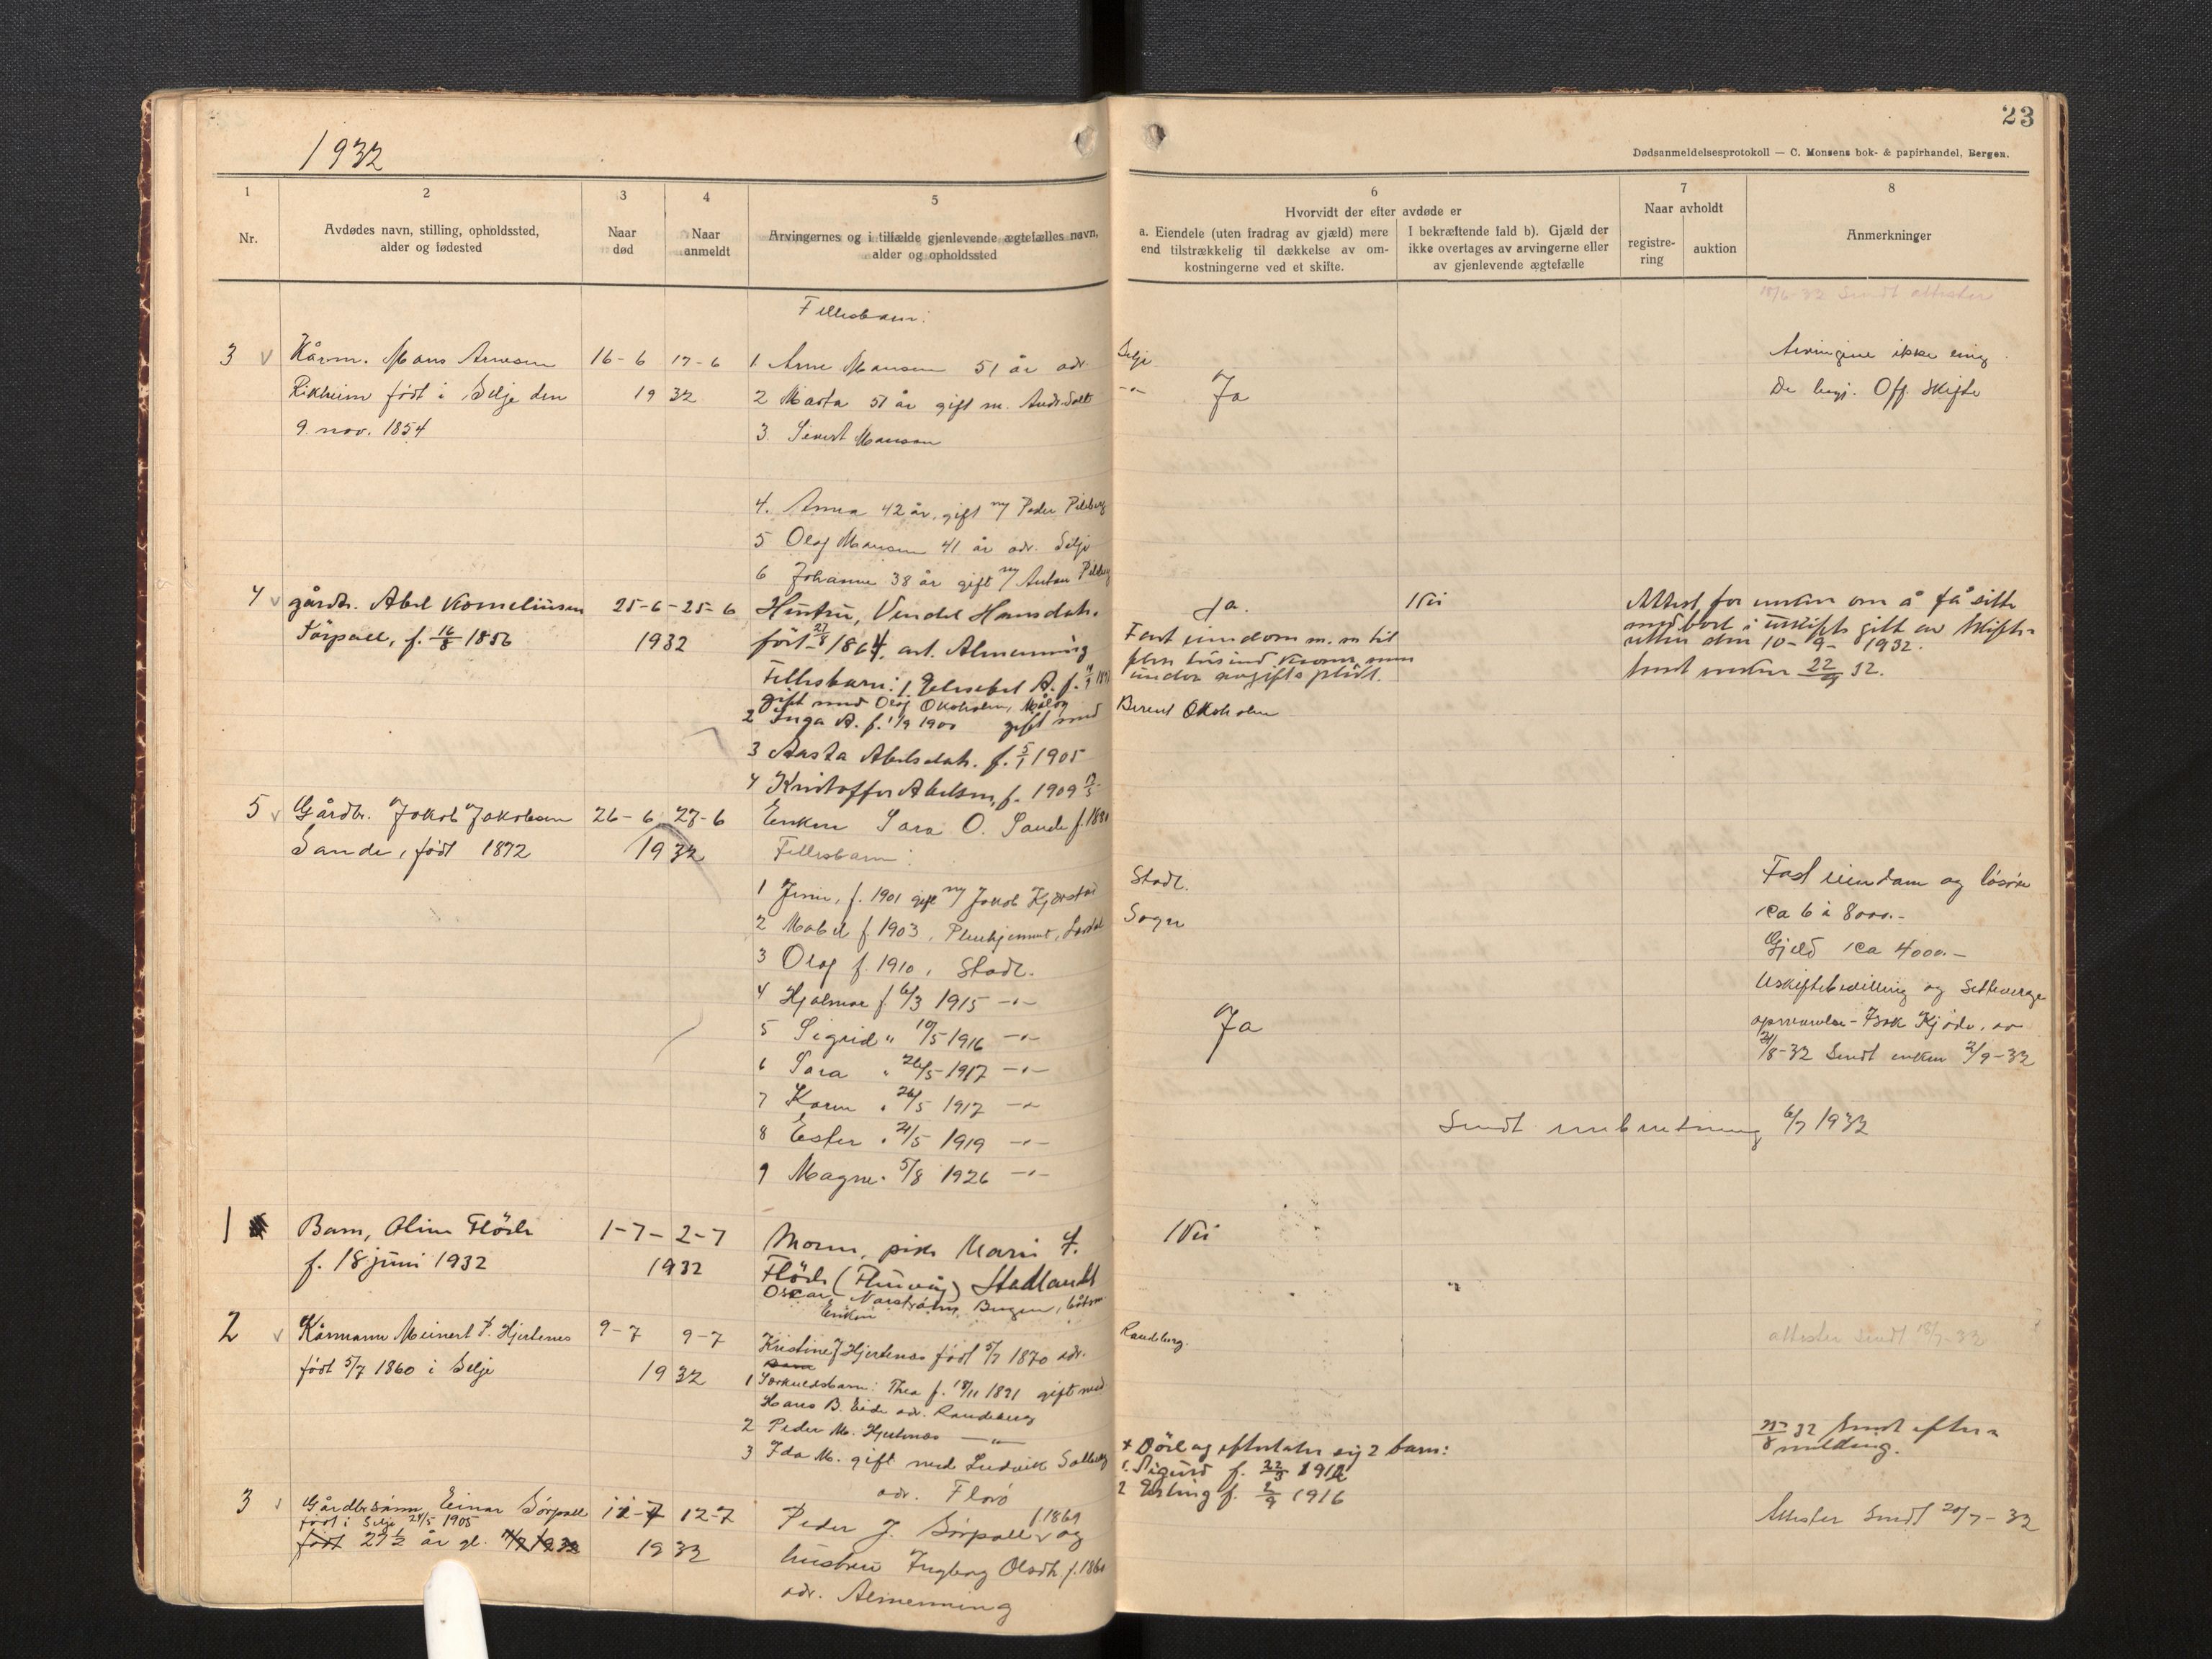 1932
23
Dødsanmeldelsesprotokoll — C. Monsens bok- & papirhandel, Bergen.
1
Nr.
2
Avdødes navn, stilling, opholdssted,
alder og fødested
3
Naar
død
4
Naar
anmeldt
5
Arvingernes og i tilfælde gjenlevende ægtefælles navn,
alder og opholdssted
6
Hvorvidt der efter avdøde er
a. Eiendele (uten fradrag av gjæld) mere
end tilstrækkelig til dækkelse av om-
kostningerne ved et skifte.
I bekræftende fald b). Gjæld der
ikke overtages av arvingerne eller
av gjenlevende ægtefælle
7
Naar avholdt
registre-
ring
auktion
8
Anmerkninger
18/6-32 Sendt attester
Fellesbarn:
3 Kårm. Mons Arnesen 16-6 17-6 1 Arne Monsen 51 år adr. Selje
Rikheim født i Selje den 1932 2 Marta 51 år gift m.
9. nov. 1854 3. Sivert Monsen
Ja
Arvingene ikke enig
De begj. Off. Skifte
4. Anna 42 år, gift m/ Peder
5 Olaf Monsen 41 år adr. Selje
6 Johanne 38 år gift m/ Anton
4 gårdbr. Abel Korneliussen 25-6-25-6 Hustru, Vendel Hansdatr.
Sørpoll, f. 16/8 1856 1932 født 27/8 1864. adr. Almenning
Fellesbarn: 1. Elisabet A. f.
gift med Olaf Okoholm, Måløy
2 Inga A. f. 1/9 1900 gift med Berent Okoholm
3 Aasta Abelsdatr. f. 5/1 1905
4 Kristoffer Abelsen, f. 1909
Ja. Nei
Fast eiendom m. m til
flere tusind kroner, men
under avgiftspligt.
Attest for enken om å få sitte
med boet i uskifte gitt av skifte-
retten den 10-9-1932.
Sendt enken 22/9 32.
5 Gårdbr. Jakob Jakobsen 26-6 27-6 Enken Sara O. Sande f. 1880
Sande, født 1872 1932 Fellesbarn:
1 Jenni, f. 1901 gift m/ Jakob Kjerstad Stadl.
2 Mabel f. 1903, Pleiehjemmet, Sogn
3 Olaf f. 1910, Stadl.
4 Hjalmar f 6/3 1915 -"-
5 Sigrid " 10/5 1916 -"-
6 Sara " 26/5-1917 -"-
7 Karen " 26/5 1917 -"-
8 Ester " 21/5 1919 -"-
9 Magne " 5/8 1926 -"-
Ja
Fast eiendom og løsøre
ca 6 à 8000.-
Gjeld ca 4000.-
Uskiftebevilling og Setteverge
opnevnelse - Isak Kjøde, av
31/8-32 Sendt enken 2/9-32
Sendt innberetning 6/7 1932
1 Barn, Oline Fløde 1-7-2-7 Moren, pike Marie F.
f. 18 juni 1932 1932 Stadlandet
Oscar Bergen,
Nei
"
2 Kårmann Meinert P. Hjertenes 9-7 9-7 Enken
født 5/7 1860 i Selje 1932 Kristine J Hjertenes født 5/7 1870 adr. Raudeberg.
1 Særkuldsbarn: Thea f. 18/11 1891 gift med
Hans B. Eide adr. Raudeberg
2 Peder M. Hjertenes -"-
3 Ida M. gift med Ludvik Solberg
adr. Florø
+ Død og efterlater sig 2 barn:
1. Sigurd f. 22/3 1912
2 Erling f. 2/9 1916
attester Sendt 18/7-32
32 Sendt efter-
melding.
3 Gårdbr.sønn Einar Sørpoll 11-7 12-7 Peder J. Sørpoll f.1869 og
født i Selje 24/5 1905 1932 hustru Ingborg Olsdtr f. 1860
født 27 1/2 år gl. adr. Almenning
Attester Sendt 20/7-32